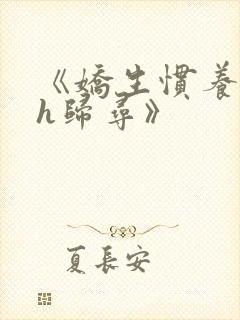 《嬌生慣養
h歸尋》
夏長安